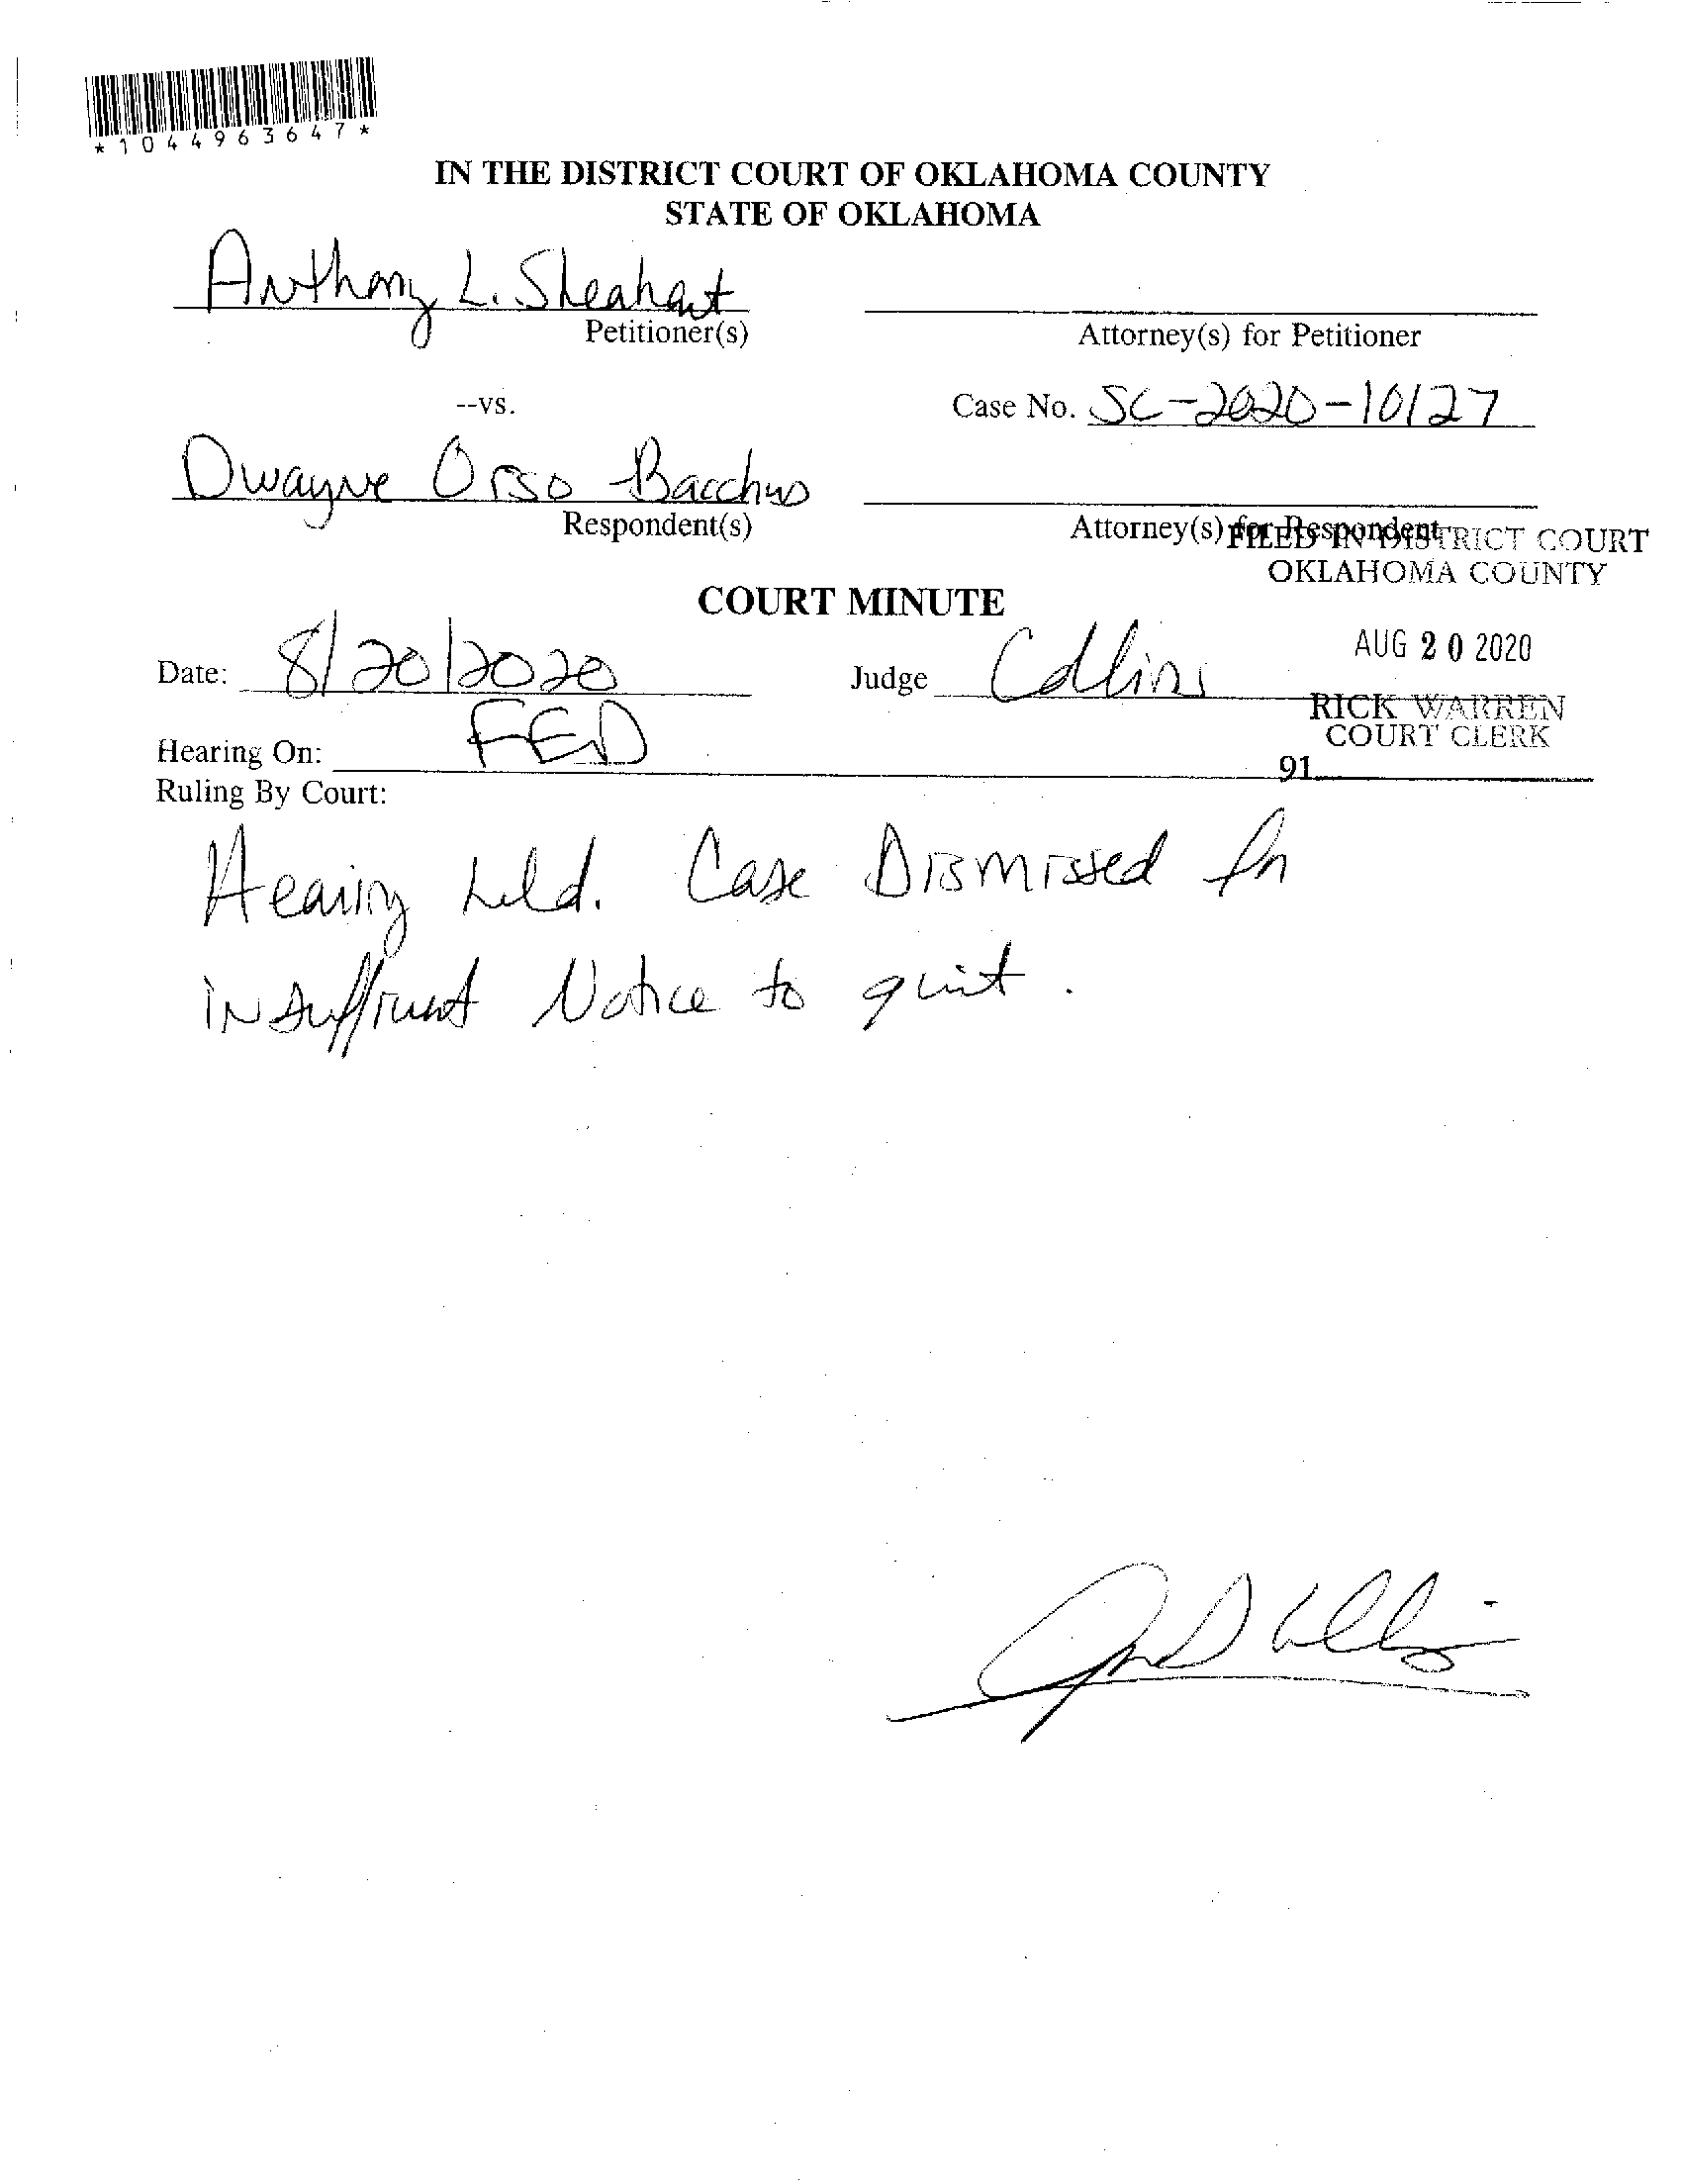 *1044963647*
IN THE DISTRICT COURT OF OKLAHOMA COUNTY
STATE OF OKLAHOMA
Anthony L. Sheahart
Petitioner(s)
Attorney(s) for Petitioner
--vs.
Case No. SC-2020-10127
Dwayne Orso Bacchus
Respondent(s)
Attorney(s) for Respondent
FILED IN DISTRICT COURT
OKLAHOMA COUNTY
COURT MINUTE
AUG 20 2020
Date: 8/20/2020
Judge Collins
RICK WARREN
COURT CLERK
Hearing On: FED
91
Ruling By Court:
Hearing held. Case Dismissed for
insufficient Notice to quit.